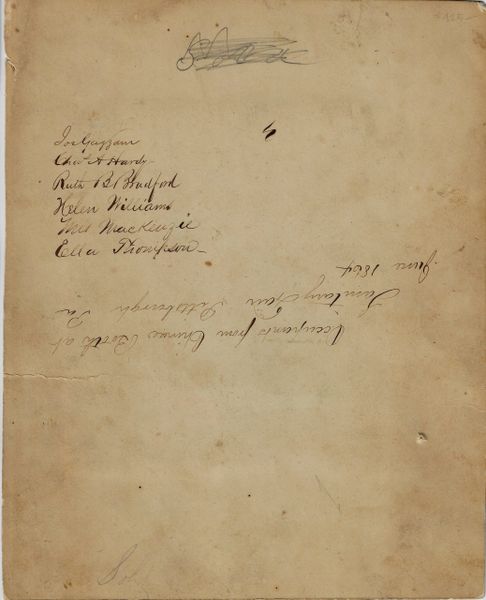 Jos Gazzam
Chas A Hardy
Ruth B. Bradford
Helen Williams
Miss MacKenzie
Ella Thompson
Occupants from Chinese Booth at
Sanitary Fair Pittsburgh Pa
June 1864